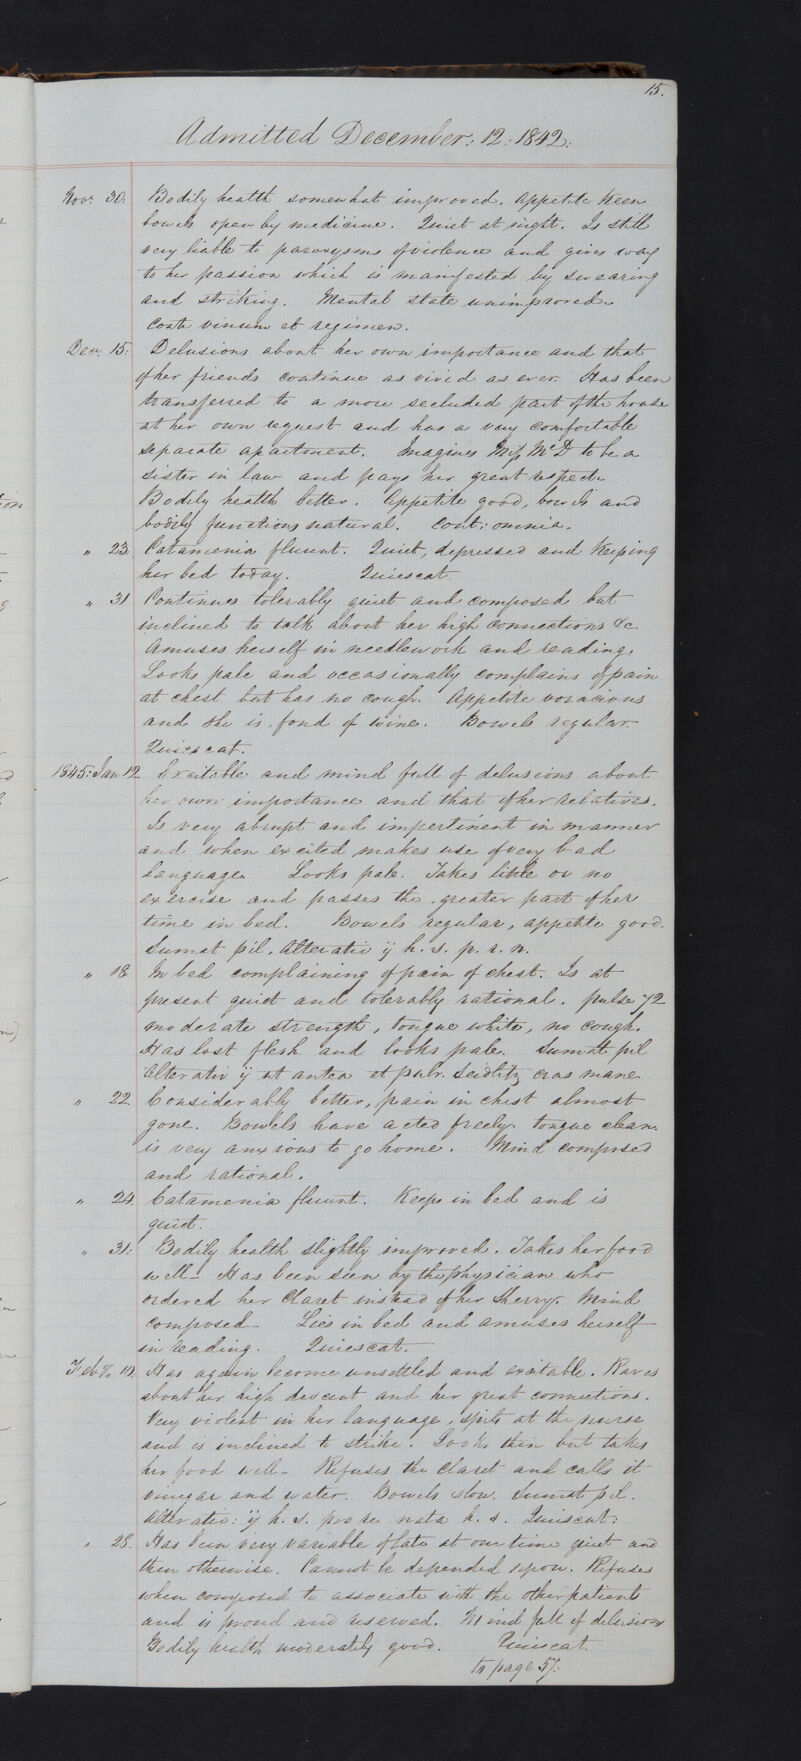 15.
Admitted December: 12: 1842:
Novr. 30. Bodily health somewhat improved. Appetite keen
bowels open by medicine. Quiet at night. Is still
very liable to paroxysms of violence and gives way
to her passion which is manifested by swearing
and striking. Mental state unimproved.
Contr vinum et regimen.
Decr. 15: Delusions about her own importance and that
of her friends continue as vivid as ever. Has been
transferred to a more secluded part of the house
at her own request and has a very comfortable
separate apartment. Imagines Miss McD to be a
sister in law and pays her great respect.
Bodily health better. Appetite good, bowels and
bodily functions natural. Cont: omnia.
" 23. Catamenia fluunt. Quiet, depressed and keeping
her bed today. Quiescat
" 31 Continues tolerably quiet and composed but
inclined to talk about her high connections &c.
Amuses herself in needlework and reading.
Looks pale and occasionally complains of pain
at chest but has no cough. Appetite voracious
and she is fond of wine. Bowels regular.
Quiescat.
1845: Jan 12. Excitable and mind full of delusions about
her own importance and that of her relatives.
Is very abrupt and impertinent in manner
and when excited makes use of very bad
language. Looks pale. Takes little or no
exercise and passes the greater part of her
time in bed. Bowels regular, appetite good.
Sumat pil. Alterativ ij h. s. p. r. n.
" 18 In bed complaining of pain of chest. Is at
present quiet and tolerably rational. pulse 72
moderate strength, tongue white, no cough.
Has lost flesh and looks pale. Sumat pil
Alterativ ij ut antea et pulv. Seidlitz cras mane.
" 22. Considerably better, pain in chest almost
gone. Bowels have acted freely. tongue clean.
is very anxious to go home. Mind composed
and rational.
" 24. Catamenia fluunt. Keeps in bed and is
quiet.
" 31: Bodily health slightly improved. Takes her food
well - Has been seen by the physician who
ordered her Claret instead of her Sherry. Mind
composed - Lies in bed and amuses herself
in reading. Quiescat.
Feby. 10. Has again become unsettled and excitable. Raves
about her high descent and her great connections.
Very violent in her language, spits at the nurse
and is inclined to strike. Looks thin but takes
her food well - Refuses the claret and calls it
vinegar and water. Bowels slow. Sumat pil.
Alterativ: ij h. s. pro re nata h. s. Quiescat:
" 28. Has been very variable of late at one time quiet and
then otherwise. Cannot be depended upon. Refuses
when composed to associate with the other patients
and is proud and reserved. Mind full of delusions
Bodily health moderately good. Quiescat.
to page 57: